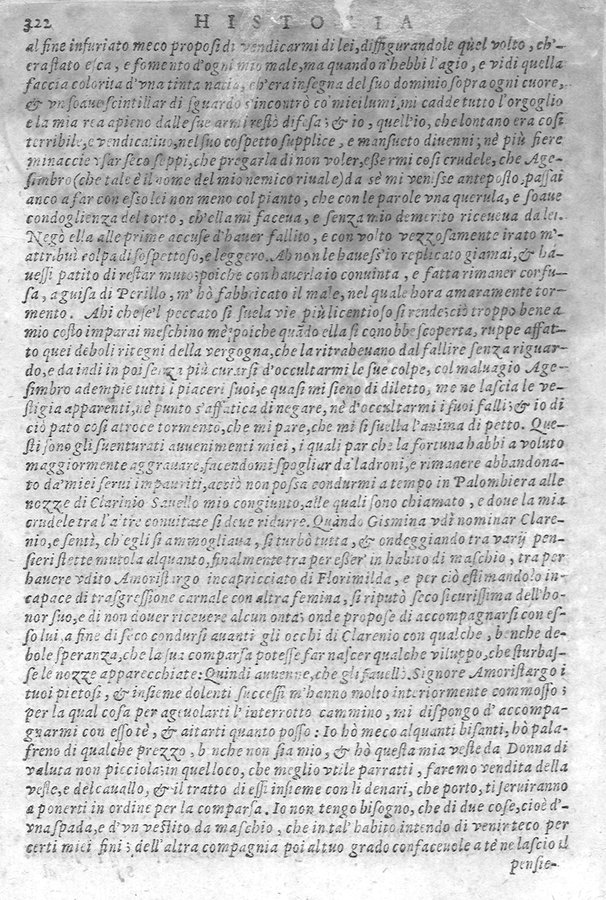 322 HISTORIA
al fine infuriato meco proposi di vendicarmi di lei, diffigurandole quel volto, ch'-
era stato esca, e fomento d'ogni mio male, ma quando n'hebbi l'agio, e vidi quella
faccia colorita d'vna tinta natia, ch'era insegna del suo dominio sopra ogni cuore,
& vn soaue scintillar di sguardo s'incontrò co' miei lumi, mi cadde tutto l'orgoglio
e la mia rea apieno dalle sue armi restò difesa; & io, quell'io, che lontano era così
terribile, e vendicatiuo, nel suo cospetto supplice, e mansueto diuenni; nè più fiere
minaccie vsar seco seppi, che pregarla di non voler, essermi così crudele, che Age-
simbro (che tale è il nome del mio nemico riuale) da sè mi venisse anteposto, passai
anco a far con esso lei non meno col pianto, che con le parole vna querula, e soaue
condoglienza del torto, ch'ella mi faceua, e senza mio demerito riceueua da lei.
Negò ella alle prime accuse d'hauer fallito, e con volto vezzosamente irato m'at-
tribuì colpa di sospettoso, e leggero. Ah non le hauess'io replicato giamai, & ha-
uessi patito di restar muto; poiche con hauerla io conuinta, e fatta rimaner confu-
sa, a guisa di Perillo, m' hò fabbricato il male, nel quale hora amaramente tor-
mento. Ahi che se'l peccato si suela vie più licentioso si rende; ciò troppo bene a
mio costo imparai meschino mè; poiche quãdo ella si conobbe scoperta, ruppe affat-
to quei deboli ritegni della vergogna, che la ritraheuano dal fallire senza riguar-
do, e da indi in poi senza più curarsi d'occultarmi le sue colpe, col maluagio Age-
simbro adempie tutti i piaceri suoi, e quasi mi sieno di diletto, me ne lascia le ve-
stigia apparenti, nè punto s'affatica di negare, nè d'occultarmi i suoi falli; & io di
ciò pato così atroce tormento, che mi pare, che mi si suella l'anima di petto. Que-
sti sono gli suenturati auuenimenti miei, i quali par che la fortuna habbi a voluto
maggiormente aggrauare, facendomi spogliar da ladroni, e rimanere abbandona-
to da' miei serui impauriti, acciò non possa condurmi a tempo in Palombiera alle
nozze di Clarinio Sauello mio congiunto, alle quali sono chiamato, e doue la mia
crudele tra l'altre conuitate si deue ridurre. Quãndo Gismina vdì nominar Clare-
nio, e sentì, ch'egli si ammogliaua, si turbò tutta, & ondeggiando tra varij pen-
sieri stette mutola alquanto, finalmente tra per esser in habito di maschio, tra per
hauere vdito Amoristargo incapricciato di Florimilda, e per ciò estimandolo in-
capace di trasgressione carnale con altra femina, si riputò seco sicurissima dell'ho-
nor suo, e di non douer riceuere alcun onta; onde propose di accompagnarsi con es-
so lui, a fine di seco condursi auanti gli occhi di Clarenio con qualche, benche de-
bole speranza, che la sua comparsa potesse far nascer qualche viluppo, che sturbas-
se le nozze apparecchiate: Quindi auuenne, che gli fauellò. Signore Amoristargo i
tuoi pietosi, & insieme dolenti successi m'hanno molto interiormente commosso;
per la qual cosa per ageuolarti l'interrotto cammino, mi dispongo d'accompa-
gnarmi con esso tè, & aitarti quanto posso: Io hò meco alquanti bisanti, hò pala-
freno di qualche prezzo, benche non sia mio, & hò questa mia veste da Donna di
valuta non picciola; in quel loco, che meglio vtile parratti, faremo vendita della
veste, e del cauallo, & il tratto di essi insieme con li denari, che porto, ti seruiranno
a ponerti in ordine per la comparsa. Io non tengo bisogno, che di due cose, cioè d'-
vna spada, e d'vn vestito da maschio, che in tal' habito intendo di venir teco per
certi miei fini; dell'altra compagnia poi al tuo grado confaceuole a tè ne lascio il
pensie-